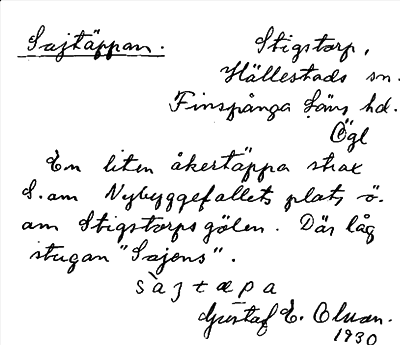 Sajtäppan.
Stigstorp,
Hällestads sn.
Finspånga läns hd.
Ögl
En liten åkertäppa strax
S. om Nybyggefallets plats ö.
om Stigstorpsgölen. Där låg
stugan "Sajens".
Gustaf E. Olson.
1930